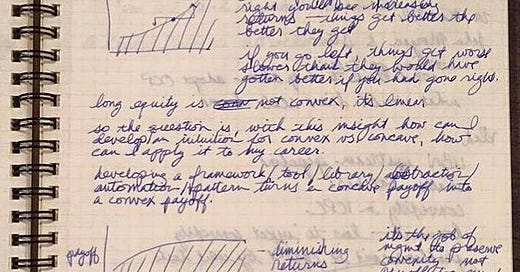 right would see increasing
returns - things get better the
better they get
if you go left, things get worse
slower than they would have
gotten better if you had gone right.
long equity is not convex, it's linear
so the question is, with this insight how can I
develop an intuition for convex vs concave, how
can I apply it to my career.
developing a framework/tool/library/abstraction/
automation/pattern turns a concave payoff into
a convex payoff.
payoff
- diminishing
returns
it's the job of
mgmt to preserve
convexity, not